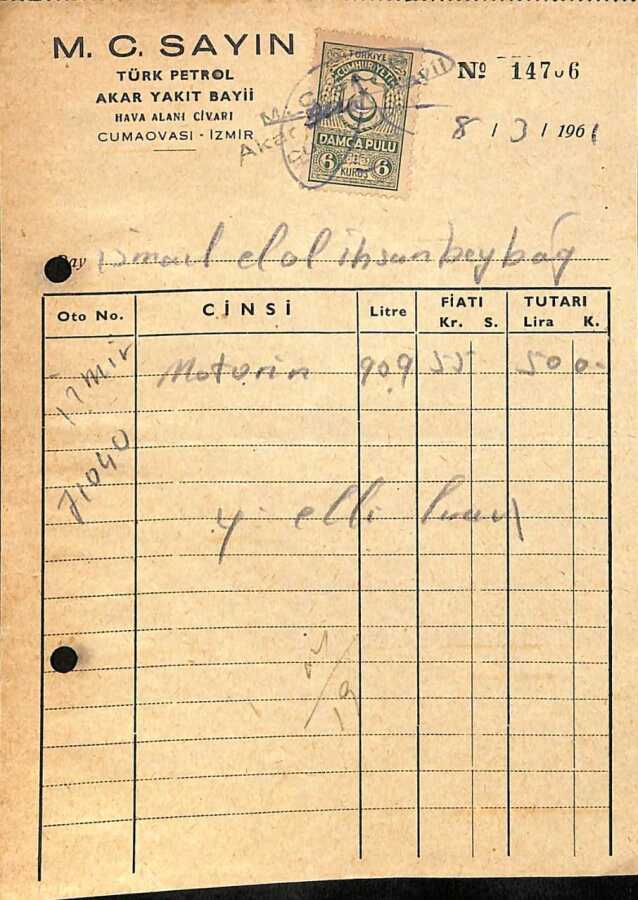 M. C. SAYIN
TÜRK PETROL
AKAR YAKIT BAYİİ
HAVA ALANI CİVARI
CUMAOVASI - İZMİR
TÜRKİYE
CUMHURİYETİ
DAMGA PULU
6 6
KURUŞ
M. C.
Akar
BAYİİ
Nº 14706
8 / 3 / 1961
Bay ismail elol ihsanbeybağ
Oto No. CİNSİ Litre FİATI Kr. S. TUTARI Lira K.
izmir Motorin 909 55 50 0-
71040
Y. elli lirayı